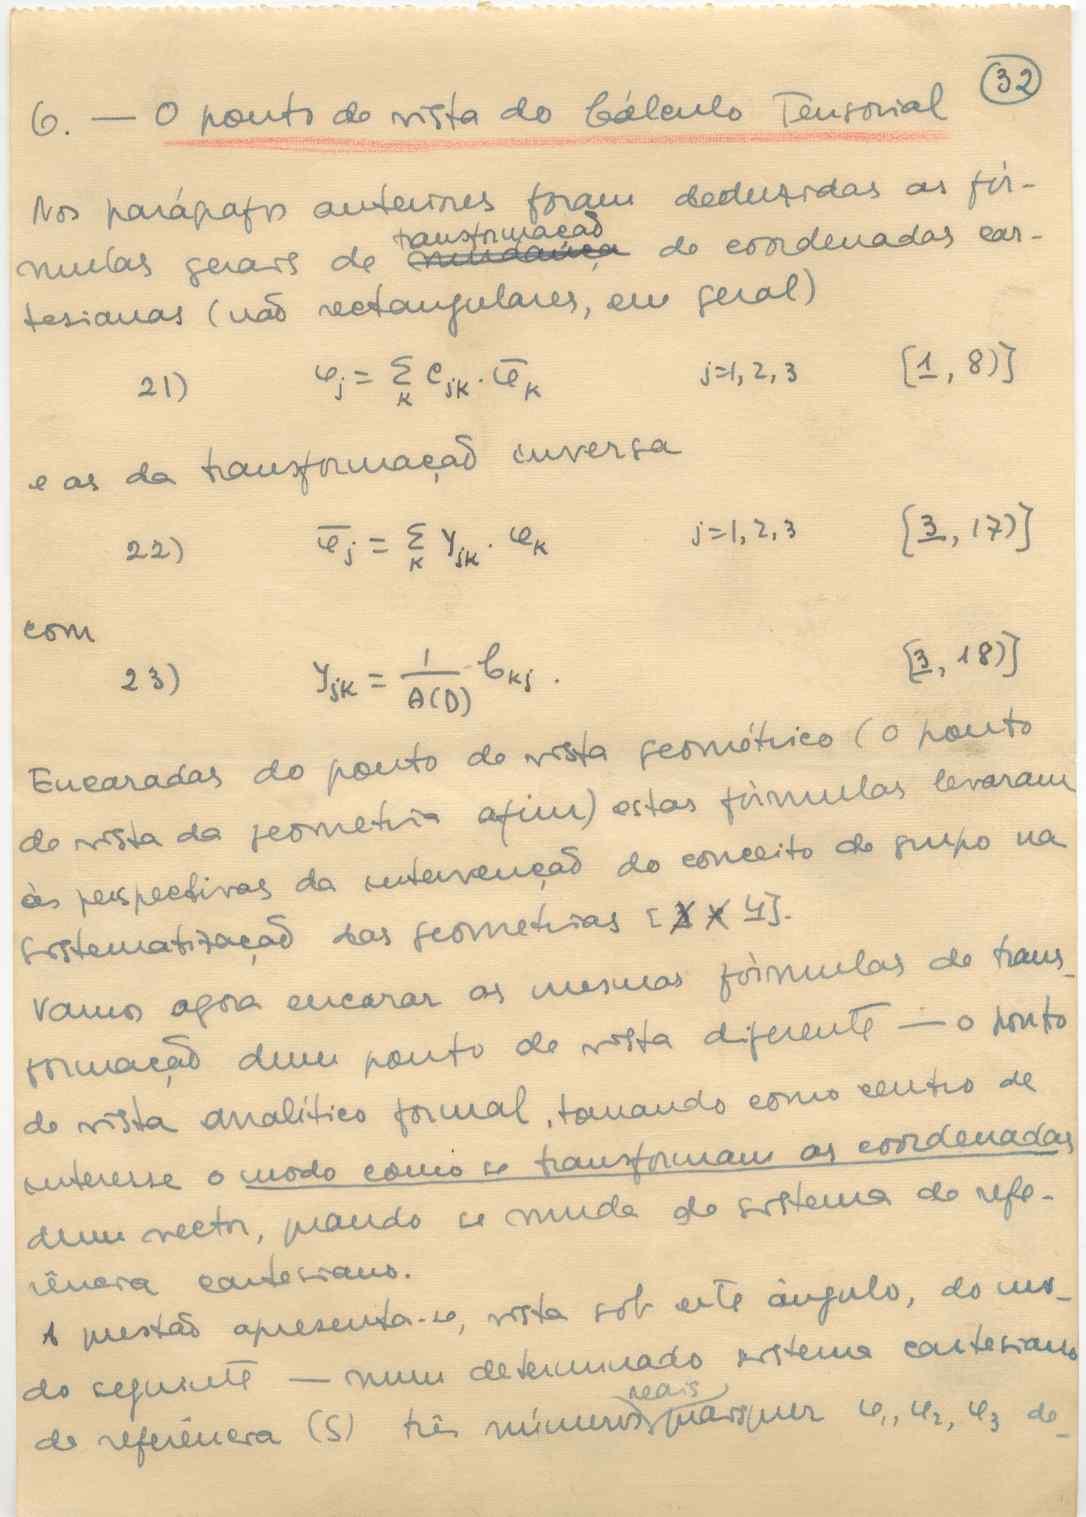 32
6. — O ponto de vista do Cálculo Tensorial
Nos parágrafos anteriores foram deduzidas as fór-
mulas gerais de mudança transformação de coordenadas car-
tesianas (não rectangulares, em geral)
21) φj = Σk cjk . φ̄k j=1, 2, 3 [1, 8)]
e as da transformação inversa
22) φ̄j = Σk γjk . φk j=1, 2, 3 [3, 17)]
com
23) γjk = 1/A(D) · Ckj . [3, 18)]
Encaradas do ponto de vista geométrico (o ponto
de vista da geometria afim) estas fórmulas levaram
às perspectivas da intervenção do conceito de grupo na
sistematização das geometrias [4].
Vamos agora encarar as mesmas fórmulas de trans-
formação dum ponto de vista diferente — o ponto
de vista analítico formal, tomando como centro de
interesse o modo como se transformam as coordenadas
dum vector, quando se muda de sistema de refe-
rência cartesiano.
A questão apresenta-se, vista sob este ângulo, do mo-
do seguinte — num determinado sistema cartesiano
de referência (S) três números reais quaisquer φ1, φ2, φ3 de-